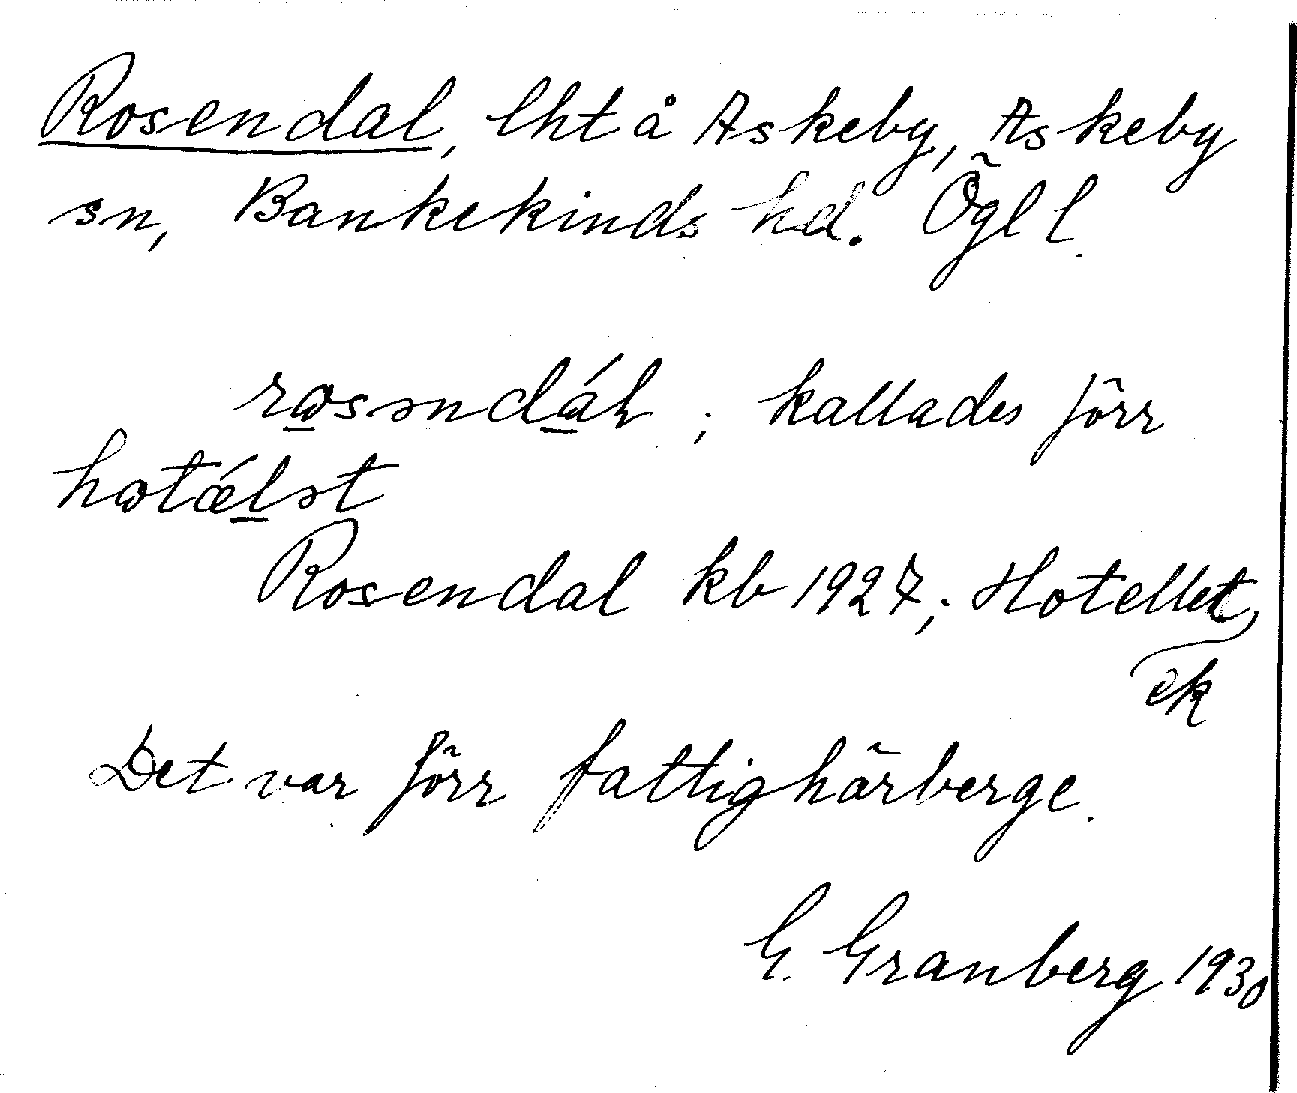 Rosendal, lht å Askeby, Askeby
sn, Bankekinds hd. Ögl l.
rosəndál ; kallades förr
hotǽlət
Rosendal kb 1927; Hotellet
ek
Det var förr fattighärberge.
G. Granberg 1930